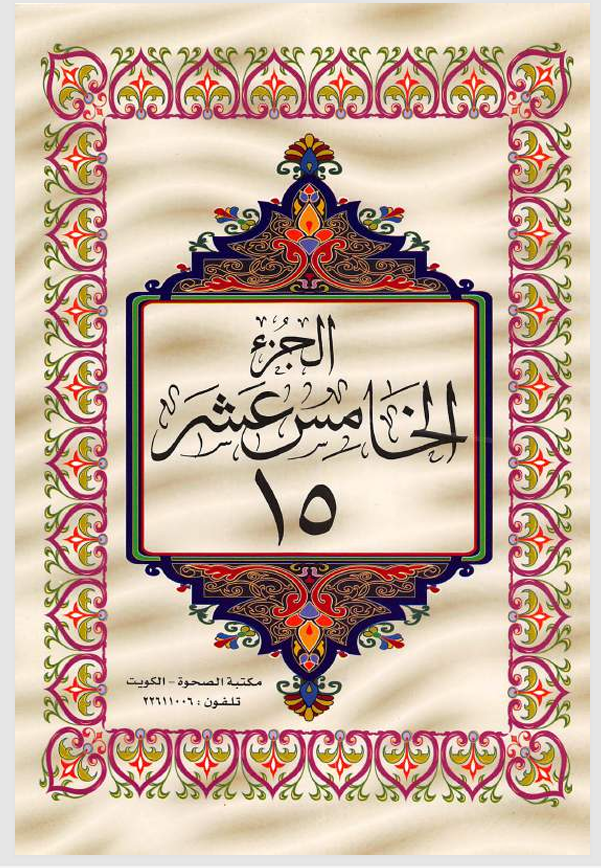 الجُزء
الخَامس عَشَر
١٥
مكتبة الصحوة - الكويت
تلفون : ٢٢٦١١٠٠٦